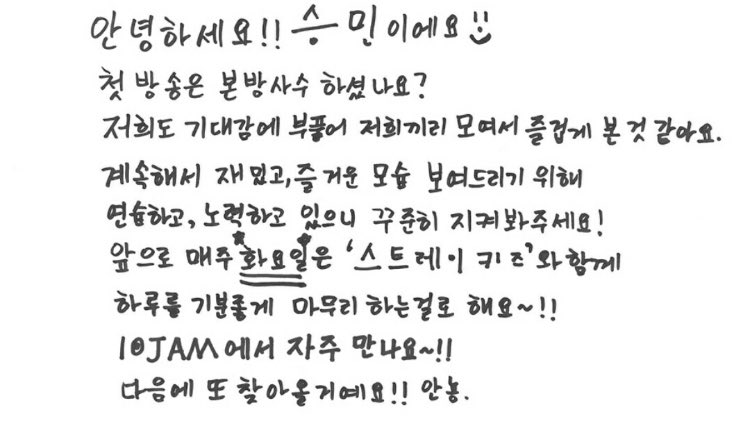 안녕하세요!! 승민이에요
첫 방송은 본방사수 하셨나요?
저희도 기대감에 부풀어 저희끼리 모여서 즐겁게 본 것 같아요.
계속해서 재밌고, 즐거운 모습 보여드리기 위해
연습하고, 노력하고 있으니 꾸준히 지켜봐주세요!
앞으로 매주 화요일은 '스트레이 키즈'와 함께
하루를 기분좋게 마무리 하는걸로 해요~!!
10JAM에서 자주 만나요~!!
다음에 또 찾아올거예요!! 안뇽.